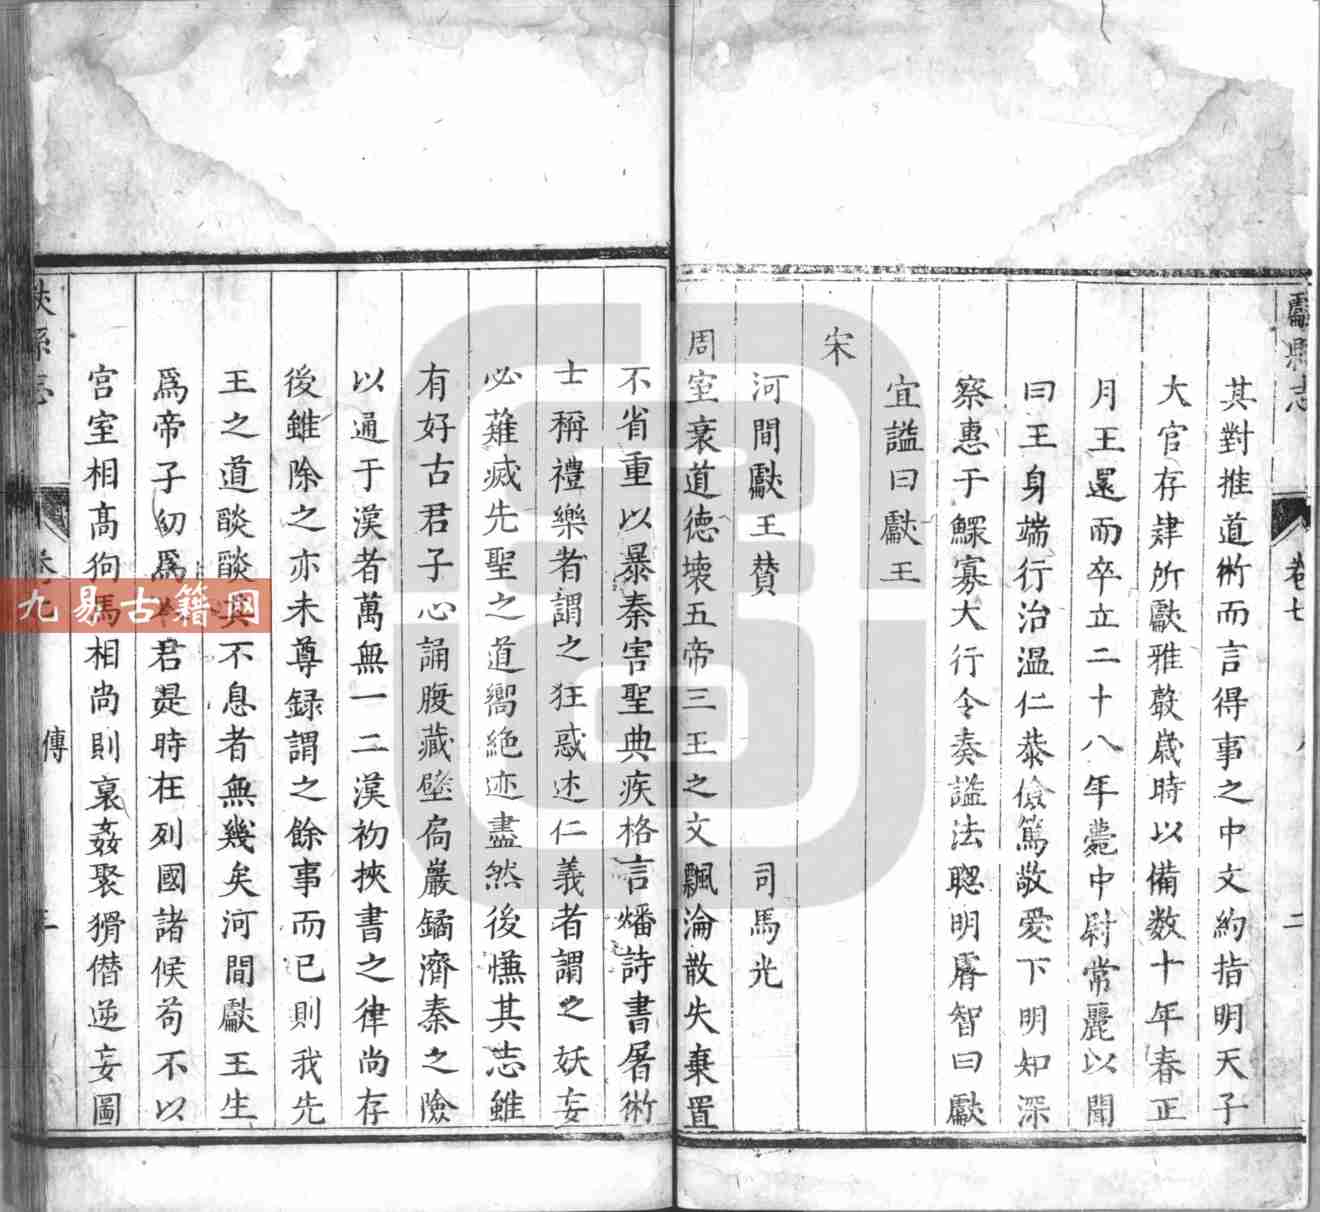 獻縣志 卷七 二
其對推道術而言得事之中文約指明天子
大官存肄所獻雅聲歲時以備数十年春正
月王還而卒立二十八年薨中尉常麗以聞
曰王身端行治溫仁恭儉篤敬愛下明知深
察惠于鰥寡大行令奏謚法聰明睿智曰獻
宜謚曰獻王
宋
河間獻王賛 司馬光
周室衰道德壊五帝三王之文飄淪散失棄置
不省重以暴秦害聖典疾格言燔詩書屠術
士稱禮樂者謂之狂惑述仁義者謂之妖妄
必薙㓕先聖之道嚮絶迹盡然後慊其志雖
有好古君子心誦腹藏壁扃巖鐍濟秦之險
以通于漢者萬無一二漢初挾書之律尚存
後雖除之亦未尊録謂之餘事而已則我先
王之道燄燄其不息者無幾矣河間獻王生
爲帝子幼爲君是時在列國諸侯苟不以
宫室相高狗馬相尚則裒姦聚猾僭逆妄圖
縣志 卷七 傳
九易古籍网